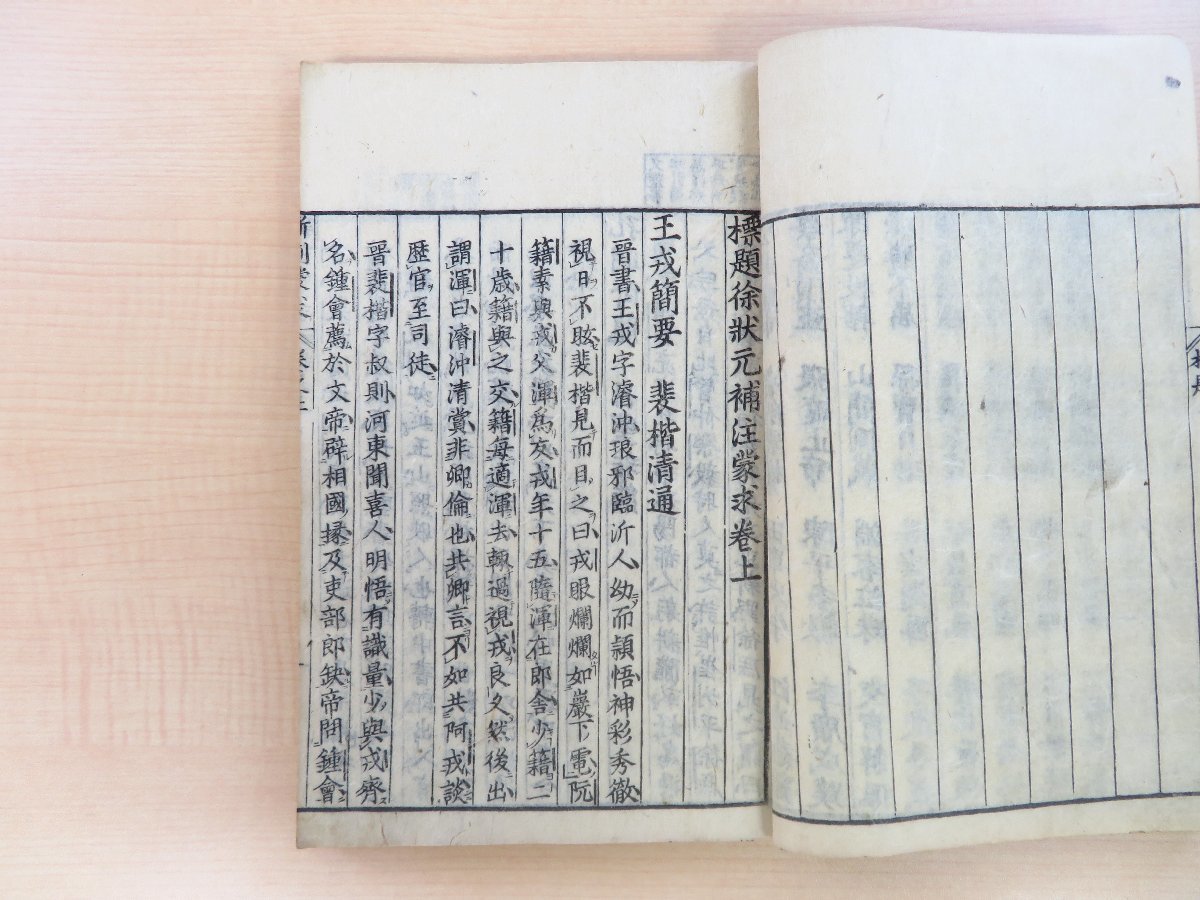 標題徐狀元補注蒙求卷上
王戎簡要 裴楷清通
晉書王戎字濬沖琅邪臨沂人幼而頴悟神彩秀徹
視日不眩裴楷見而目之曰戎眼爛爛如巖下電阮
籍素與戎父渾爲友戎年十五隨渾在郎舍少籍二
十歲籍與之交籍每適渾去輙過視戎良久然後出
謂渾曰濬沖清賞非卿倫也共卿言不如共阿戎談
歷官至司徒
晉裴楷字叔則河東聞喜人明悟有識量少與戎齊
名鍾會薦於文帝辟相國掾及吏部郎缺帝問鍾會